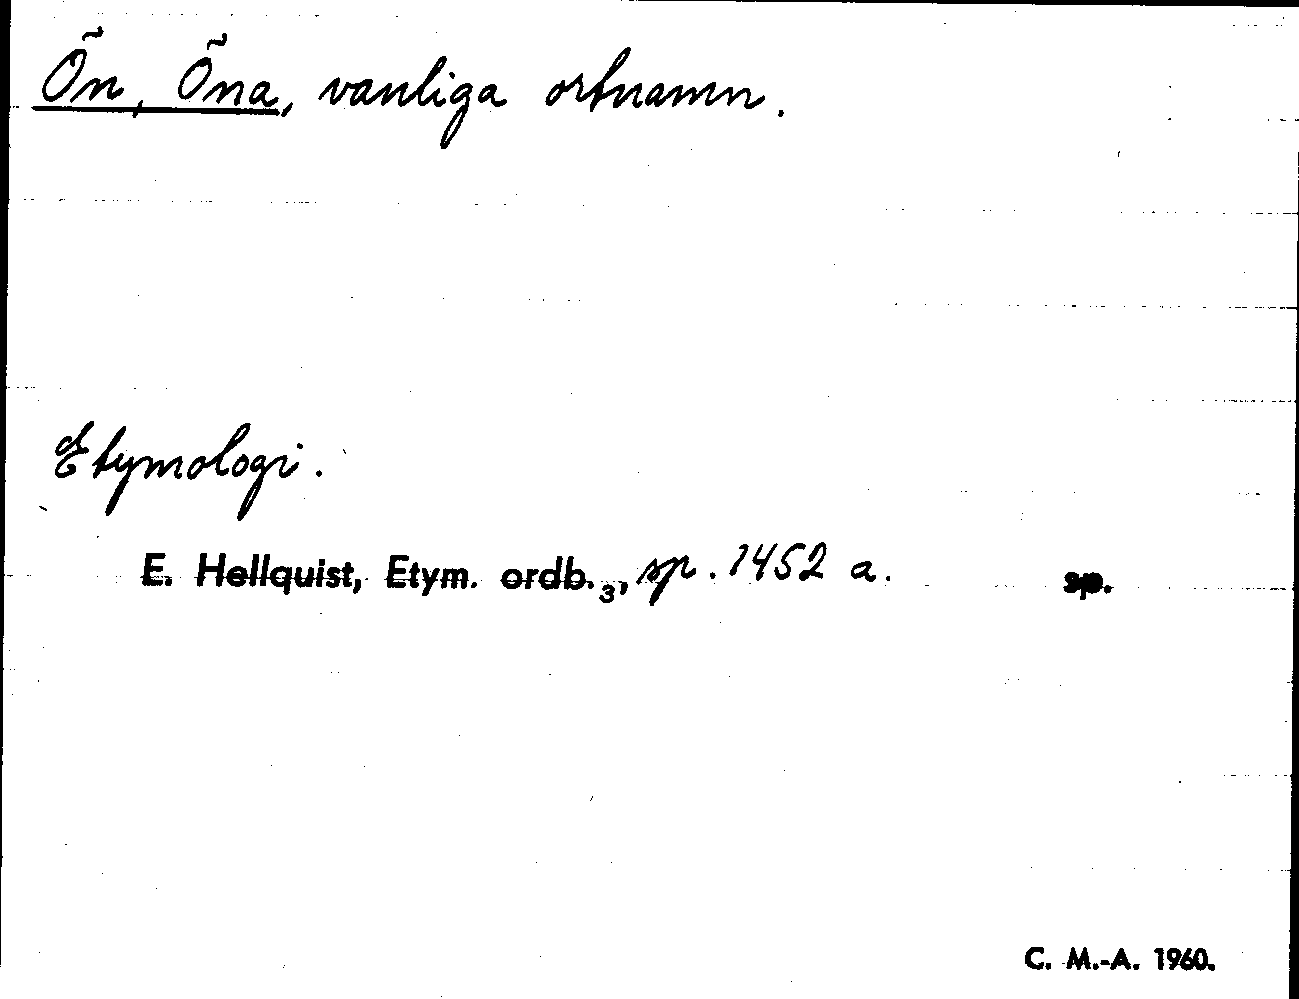 Ön, Öna, vanliga ortnamn.
Etymologi.
E. Hellquist, Etym. ordb.₃, sp. 1452 a. sp.
C. M.-A. 1960.